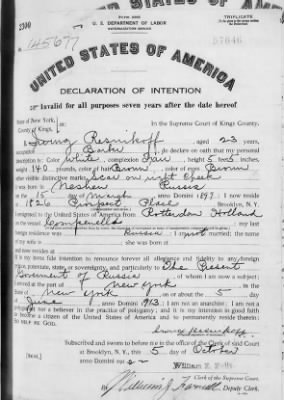 Form 2202
TRIPLICATE
U. S. DEPARTMENT OF LABOR
NATURALIZATION SERVICE
UNITED STATES OF AMERICA
DECLARATION OF INTENTION
Invalid for all purposes seven years after the date hereof
State of New York,
County of Kings,
In the Supreme Court of Kings County.
I, Irving Resnikoff, aged 23 years,
occupation Barber, do declare on oath that my personal
description is: Color White, complexion Fair, height 5 feet 5 inches,
weight 140 pounds, color of hair Brown, color of eyes Brown
other visible distinctive marks Scar on left cheek
I was born in Russia
on the 15 day of March, anno Domini 1897; I now reside
at 1826 Prospect Place, Brooklyn, N. Y.
I emigrated to the United States of America from Rotterdam Holland
on the vessel Campanello; my last
foreign residence was Russia; I am not married; the name
of my wife is; she was born at
It is my bona fide intention to renounce forever all allegiance and fidelity to any foreign
prince, potentate, state, or sovereignty, and particularly to The Present
Government of Russia, of whom I am now a subject;
I arrived at the port of New York, in the
State of New York, on or about the 5 day
of June, anno Domini 1913; I am not an anarchist; I am not a
polygamist nor a believer in the practice of polygamy; and it is my intention in good faith
to become a citizen of the United States of America and to permanently reside therein:
SO HELP ME GOD.
Subscribed and sworn to before me in the office of the Clerk of said Court
at Brooklyn, N. Y., this 5 day of October
anno Domini
[SEAL]
Clerk of the Supreme Court.
Deputy Clerk.